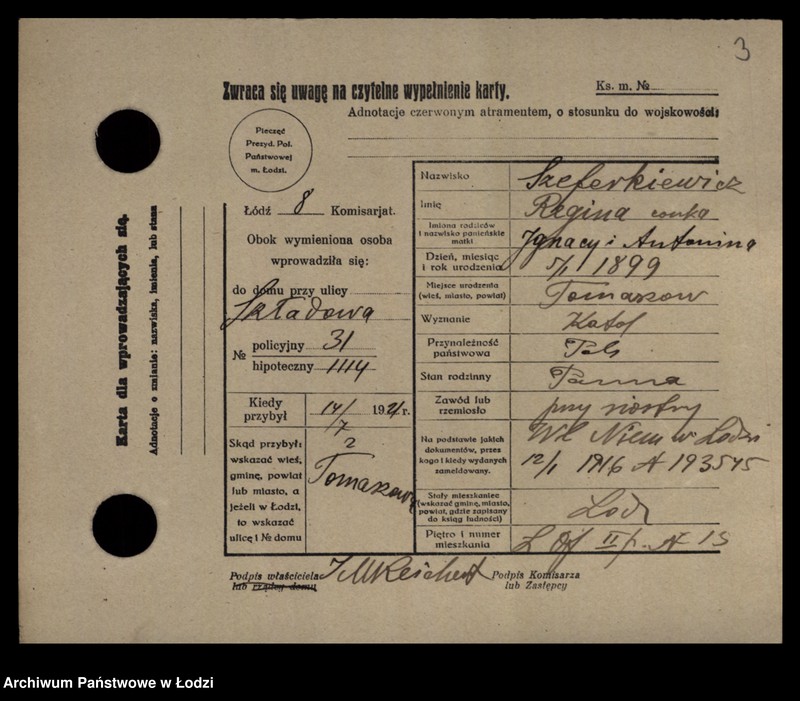 3
Zwraca się uwagę na czytelne wypełnienie karty.
Ks. m. №
Adnotacje czerwonym atramentem, o stosunku do wojskowości:
Pieczęć
Prezyd. Pol.
Państwowej
m. Łodzi.
Łódź 8 Komisarjat.
Obok wymieniona osoba
wprowadziła się:
do domu przy ulicy
Składowa
№ policyjny 31
hipoteczny 1114
Kiedy przybył 14/7 1921 r.
Skąd przybył:
wskazać wieś,
gminę, powiat
lub miasto, a
jeżeli w Łodzi,
to wskazać
ulicę i № domu
z
Tomaszowa
Nazwisko Szeferkiewicz
Imię Regina córka
Imiona rodziców
i nazwisko panieńskie
matki
Ignacy i Antonina
Dzień, miesiąc
i rok urodzenia 5/1 1899
Miejsce urodzenia
(wieś, miasto, powiat) Tomaszow
Wyznanie Katol
Przynależność
państwowa Pols
Stan rodzinny Panna
Zawód lub
rzemiosło przy siostry
Na podstawie jakich
dokumentów, przez
kogo i kiedy wydanych
zameldowany.
Wł Niem w Łodzi
12/1 1916 № 193545
Stały mieszkaniec
(wskazać gminę, miasto,
powiat, gdzie zapisany
do ksiąg ludności)
Lodz
Piętro i numer
mieszkania L Of II p. № 15
Podpis właściciela
lub rządcy domu
Podpis Komisarza
lub Zastępcy
Karta dla wprowadzających się.
Adnotacje o zmianie: nazwiska, imienia, lub stanu
Archiwum Państwowe w Łodzi